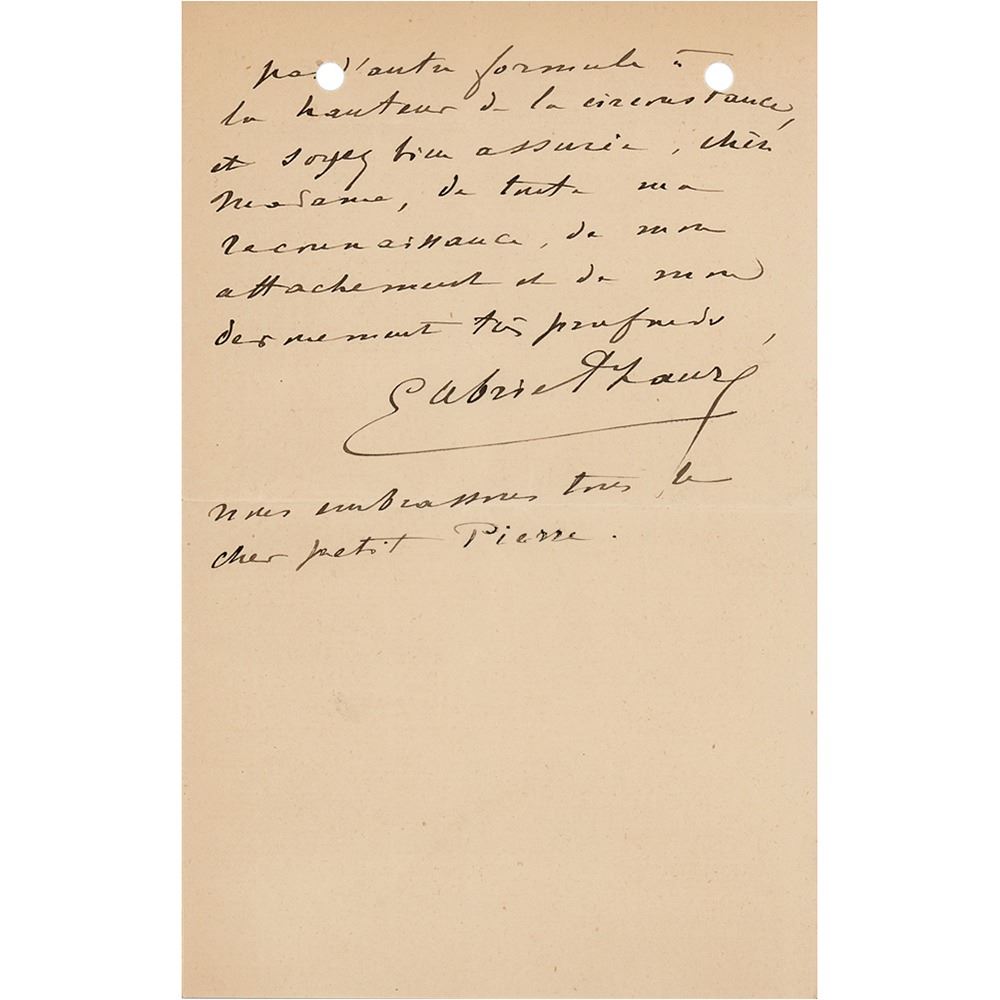 pas d'autre formule à
la hauteur de la circonstance,
et soyez bien assurée, chère
Madame, de toute ma
reconnaissance, de mon
attachement et de mon
devouement très profonds,
Gabriel Fauré
nous embrassons tous le
cher petit Pierre.